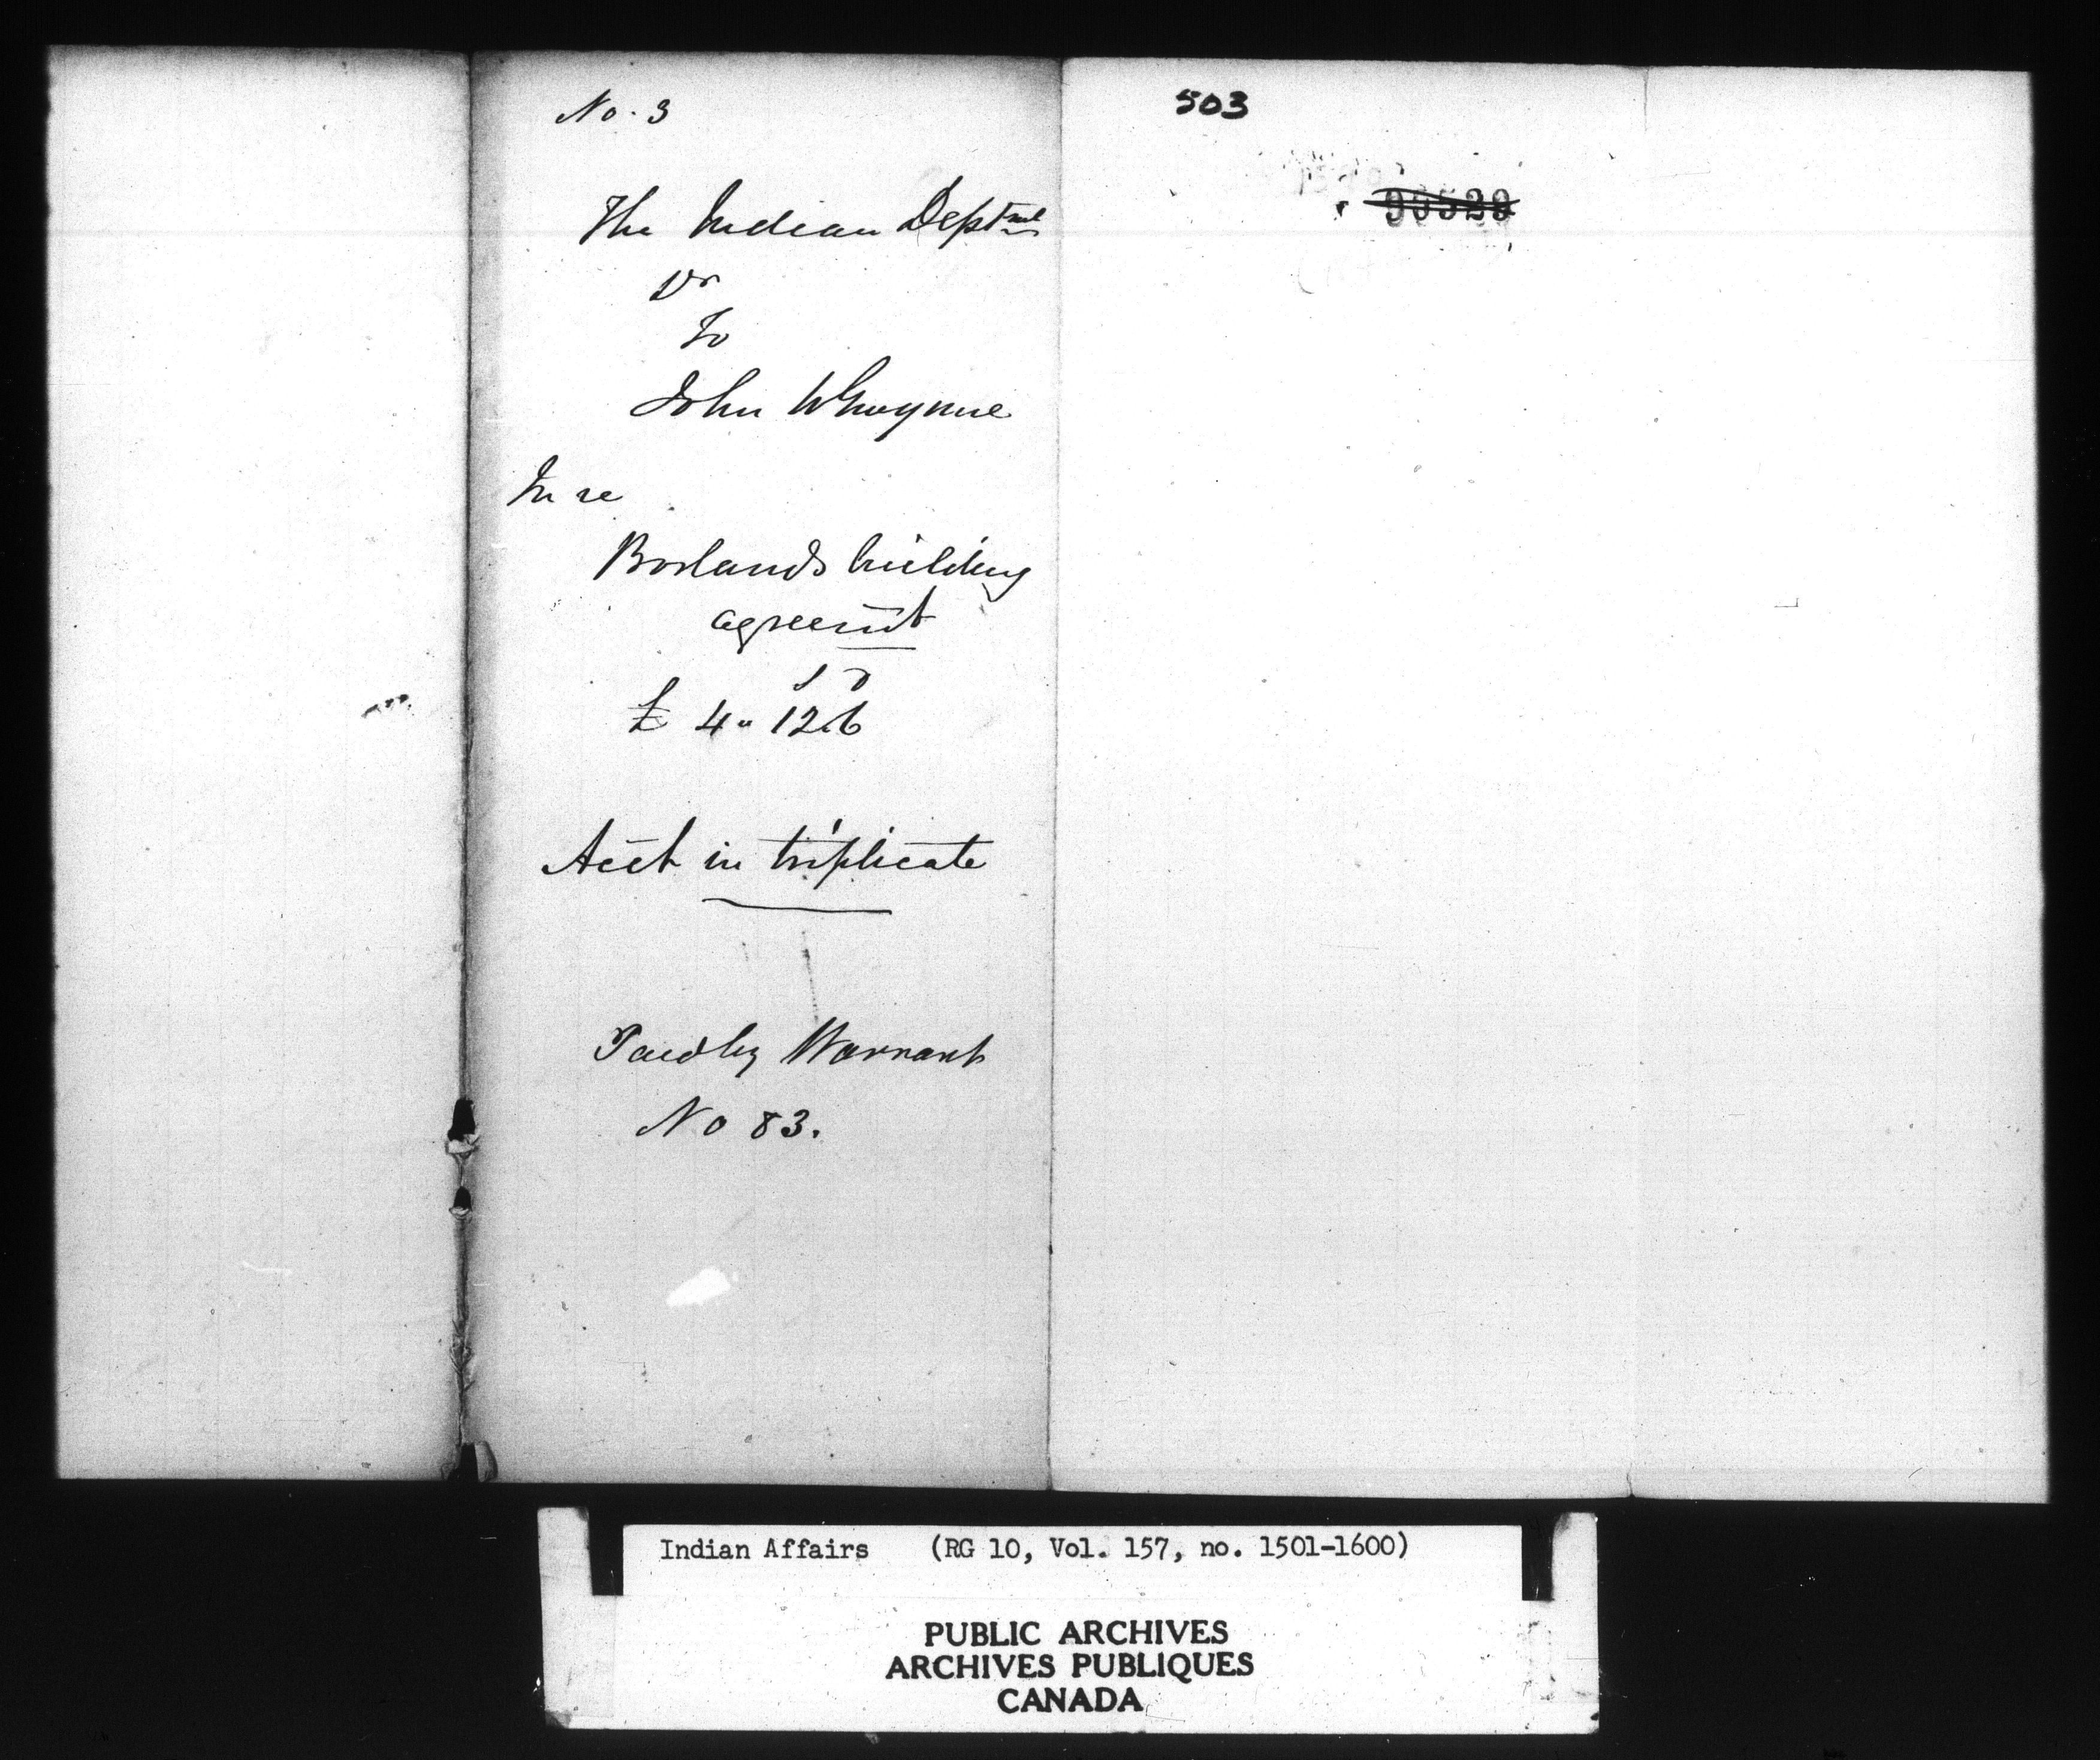 No. 3
The Indian Deptmt
Dr
To
John W Gwynne
In re
Borlands building
agreemt
s d
£ 4 " 12.6
Acct in triplicate
Paid by Warrant
No 83.
503
Indian Affairs (RG 10, Vol. 157, no. 1501-1600)
PUBLIC ARCHIVES
ARCHIVES PUBLIQUES
CANADA